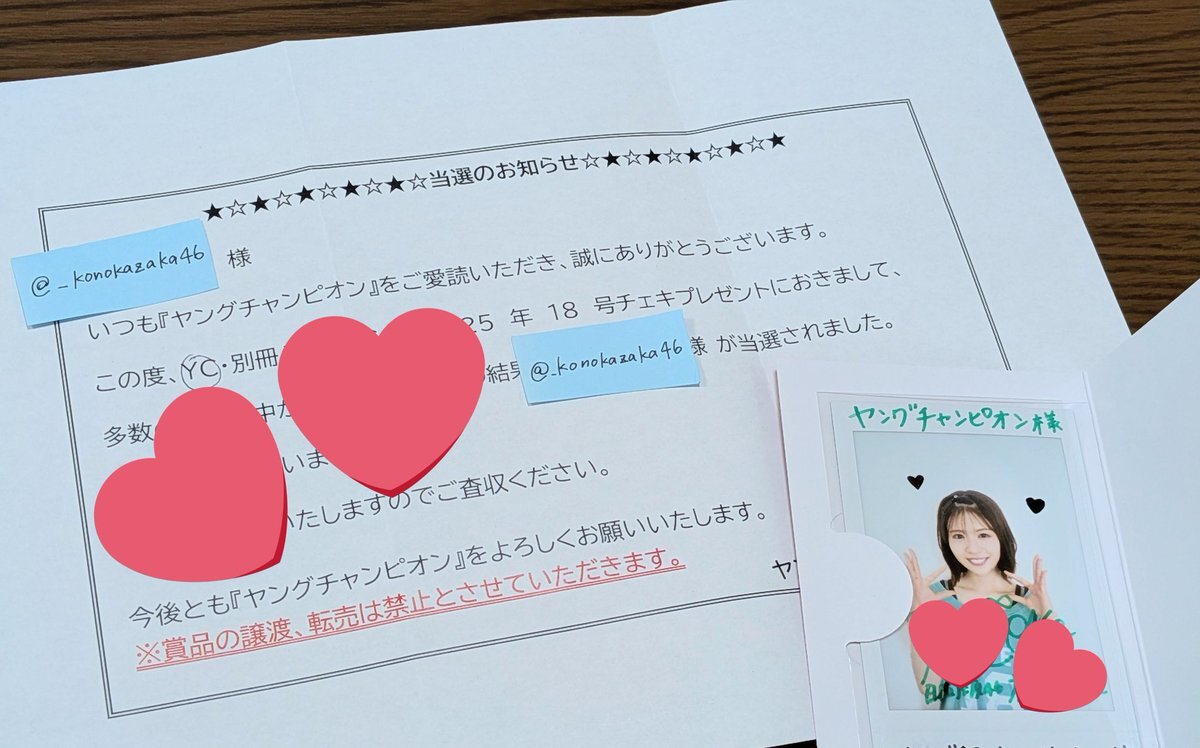 ★☆★☆★☆★☆★☆当選のお知らせ☆★☆★☆★☆★☆★
@_konokazaka46 様
いつも『ヤングチャンピオン』をご愛読いただき、誠にありがとうございます。
この度、YC・別冊 25 年 18 号チェキプレゼントにおきまして、
多数 中 結果 @_konokazaka46 様 が当選されました。
いま
いたしますのでご査収ください。
今後とも『ヤングチャンピオン』をよろしくお願いいたします。
※賞品の譲渡、転売は禁止とさせていただきます。
ヤ
ヤングチャンピオン様